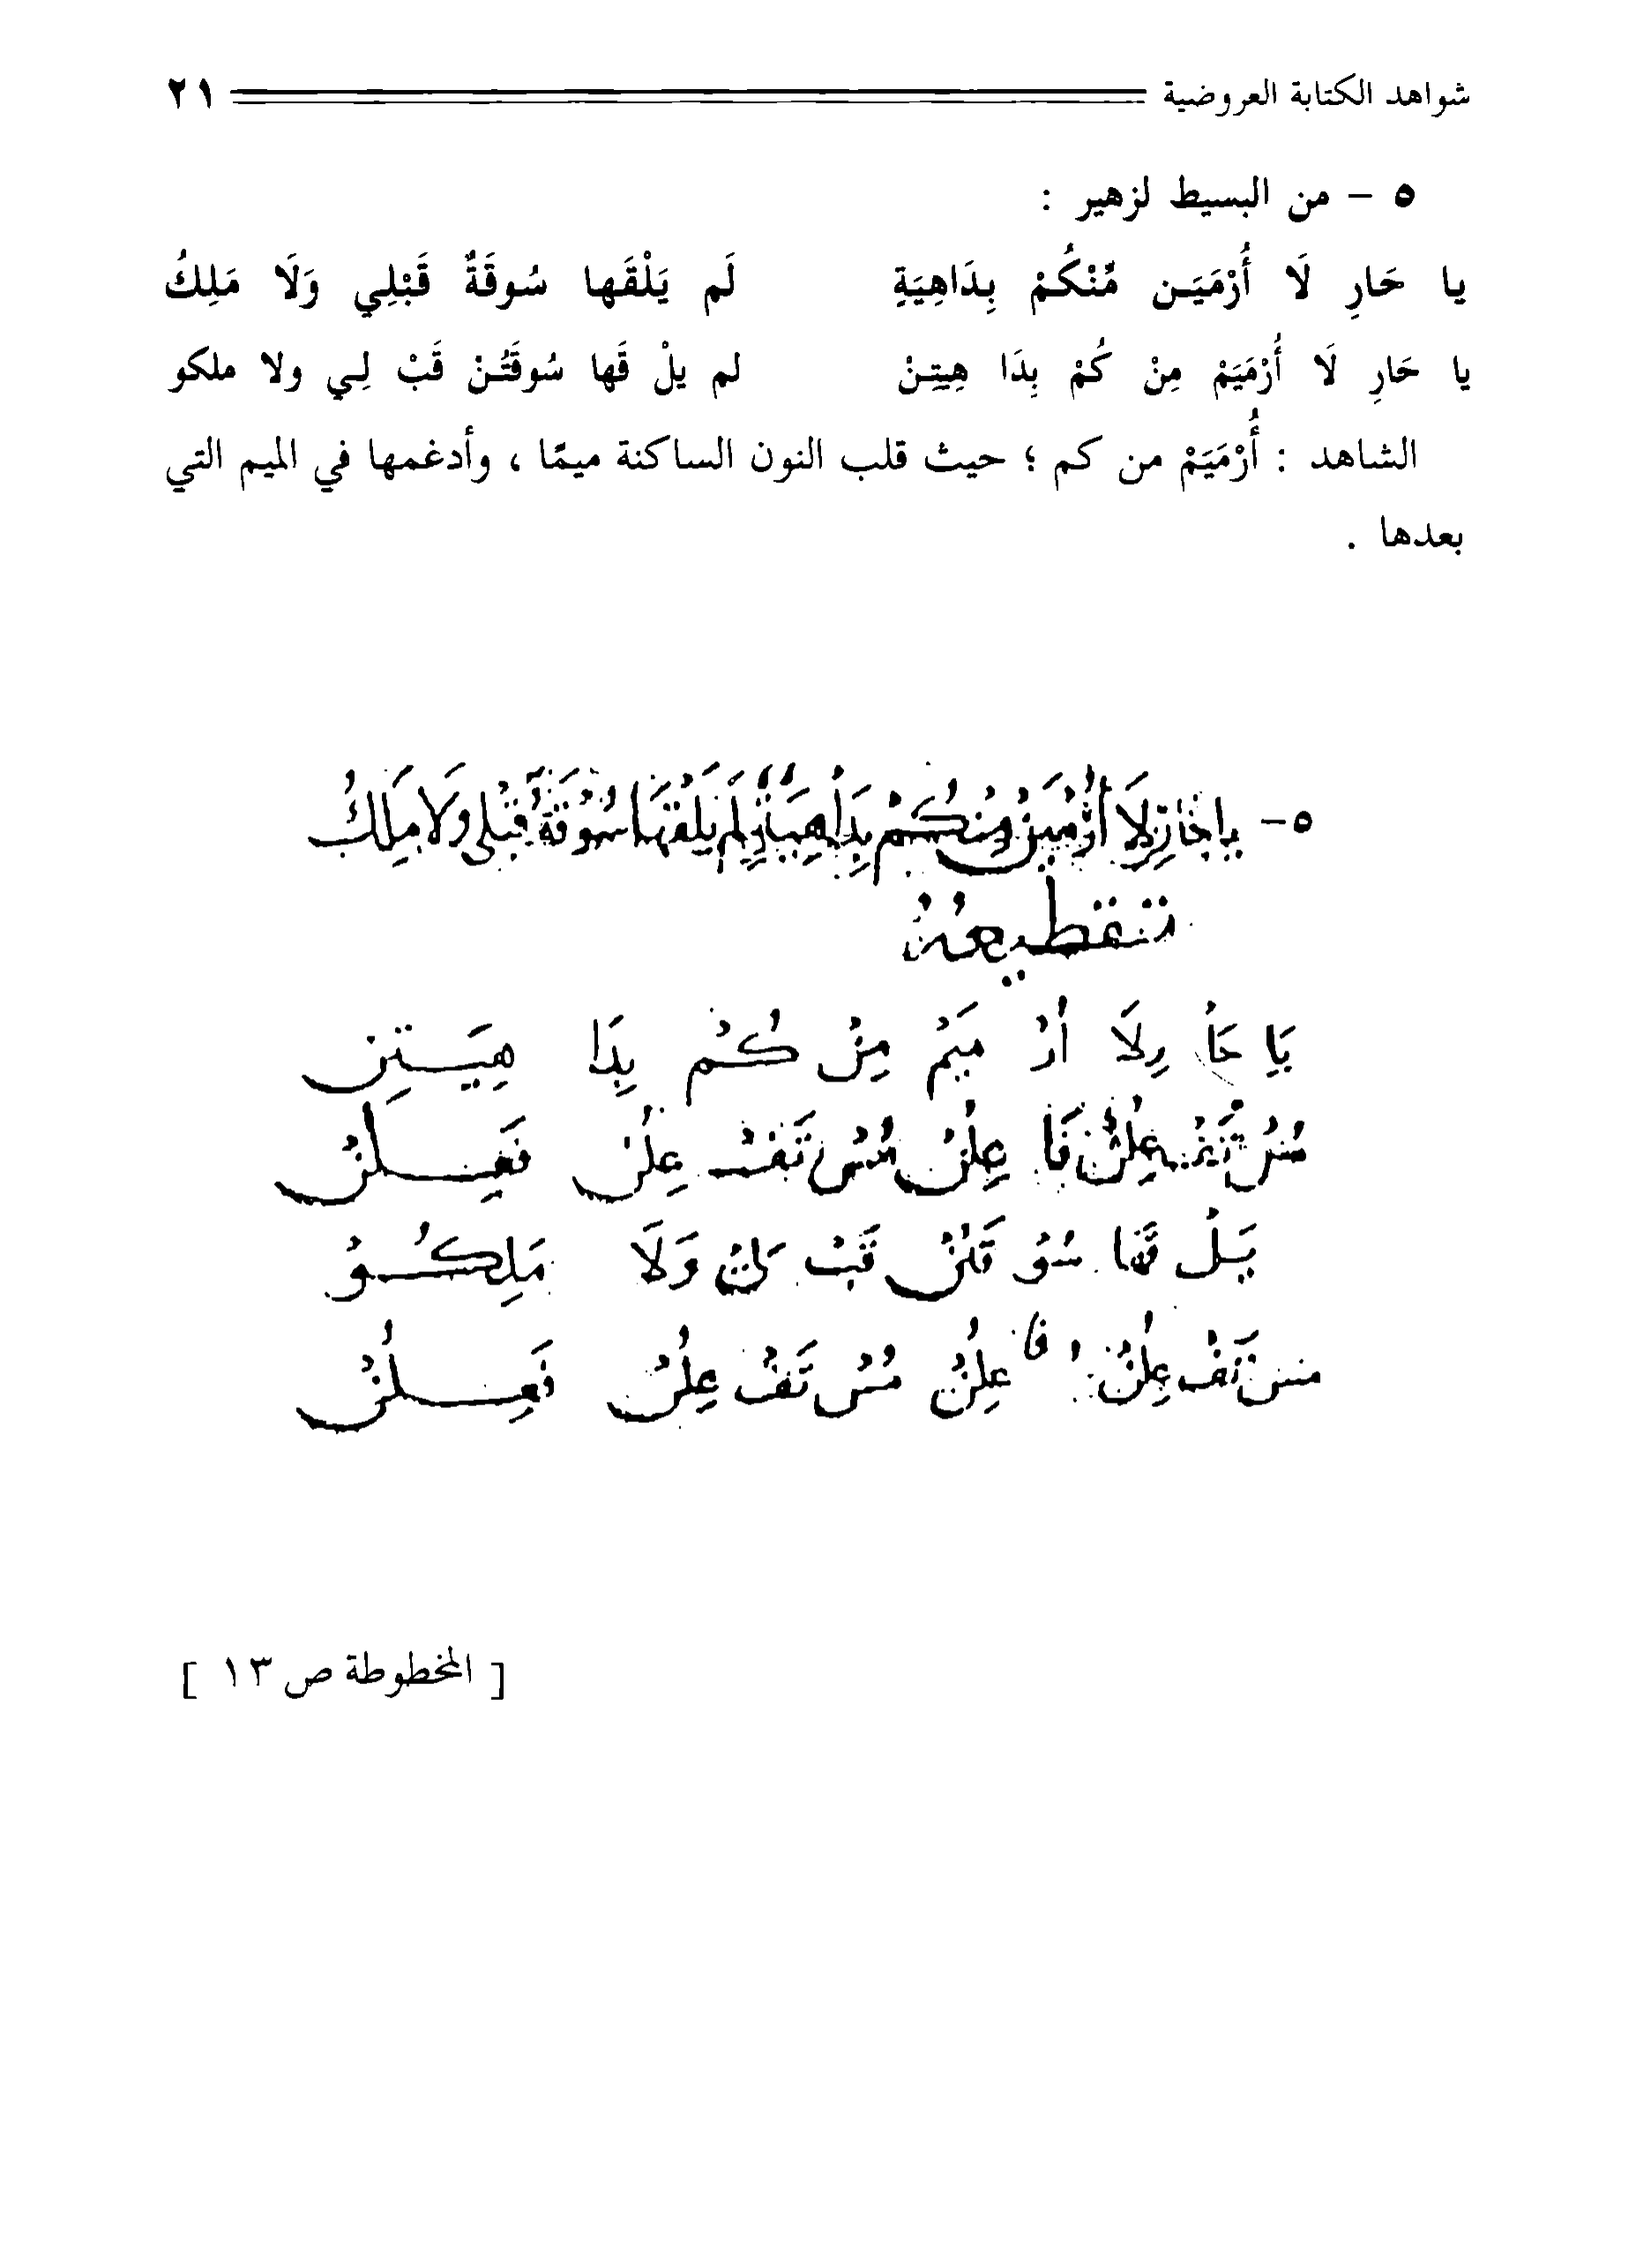 شواهد الكتابة العروضية ٢١
٥ – من البسيط لزهير :
يا حَارِ لَا أُرْمَيَـن مِّنْكُمْ بِدَاهِيَةٍ لَم يَلْقَها سُوقَةٌ قَبْلِي وَلَا مَلِكُ
يا حَارِ لَا أُرْمَيَمْ مِنْ كُمْ بِدَا هِيَتِـنْ لم يلْ قَها سُوقَتُـنْ قَبْ لِـي ولا ملكو
الشاهد : أُرْمَيَمْ من كم ؛ حيث قلب النون الساكنة ميمًا ، وأدغمها في الميم التي
بعدها .
٥- يا حَارِ لَا أُرْمَيَنْ مِنْكُمْ بِدَاهِيَةٍ لَمْ يَلْقَهَا سُوْقَةٌ قَبْلِى وَلَا مَلِكُ
تقطيعهُ
يَا حَا رِلَا أُرْ مَيَمْ مِنْ كُمْ بِدَا هِيَـتِنْ
مُسْ تَفْ عِلُنْ فَا عِلُنْ مُسْ تَفْ عِلُنْ فَعِـلُنْ
يَلْ قَهَا سُوْ قَتُنْ قَبْ لِىْ وَلَا مَلِكُـوْ
مس تَفْ عِلُنْ فا عِلُنْ مُسْ تَفْ عِلُنْ فَعِـلُنْ
[ المخطوطة ص ١٣ ]